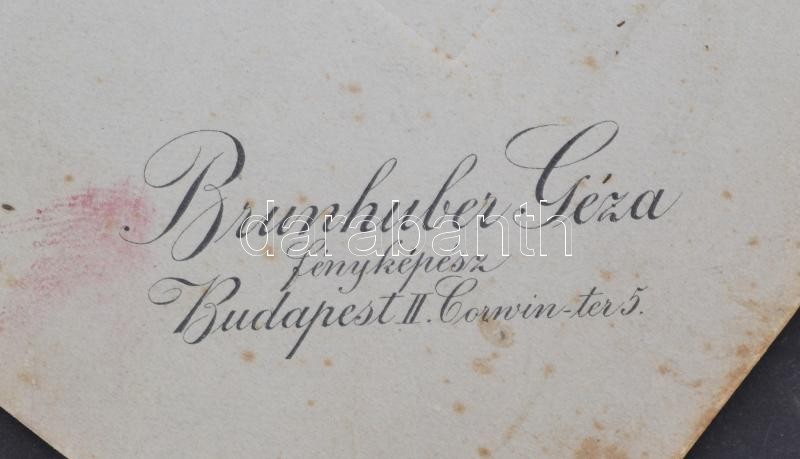 Brunhuber Géza
darabanth
fényképész
Budapest II. Corwin-ter 5.